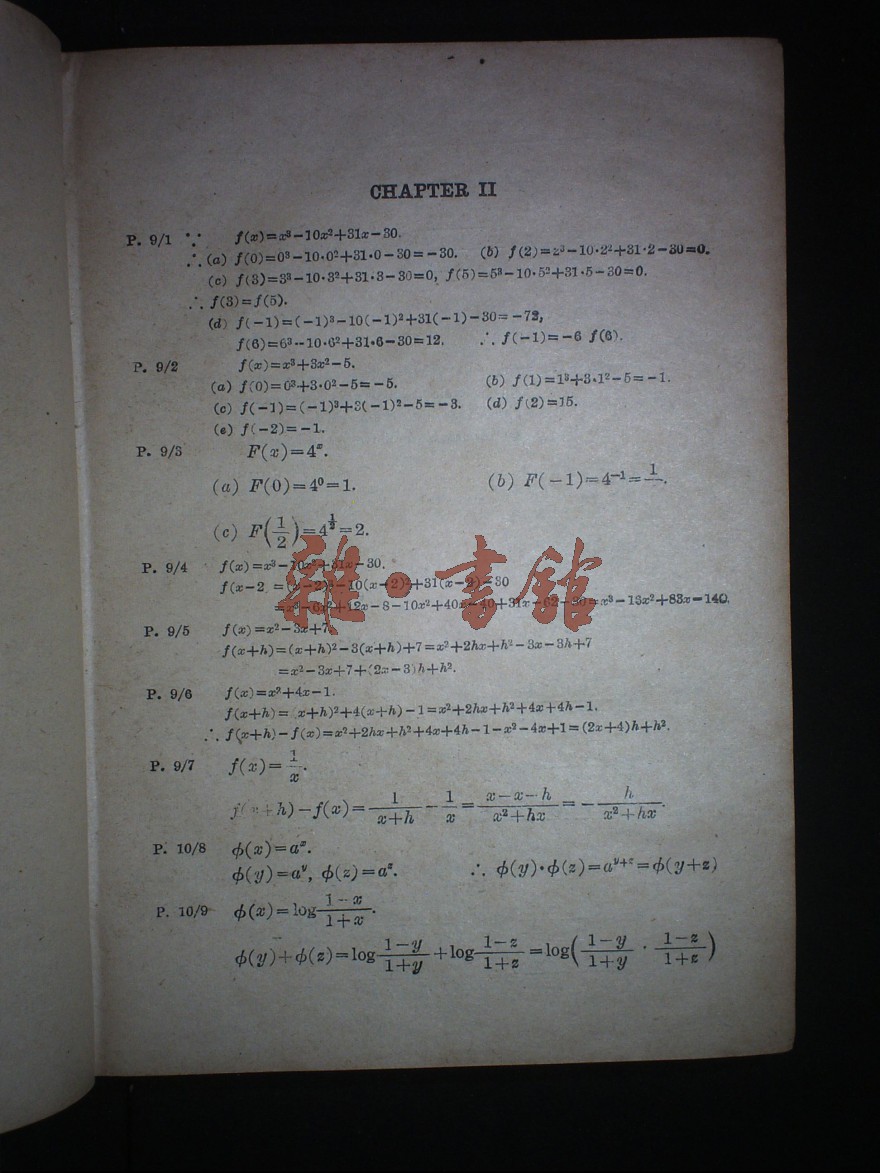 CHAPTER II
P. 9/1 ∵ f(x)=x³-10x²+31x-30.
∴ (a) f(0)=0³-10·0²+31·0-30=-30. (b) f(2)=2³-10·2²+31·2-30=0.
(c) f(3)=3³-10·3²+31·3-30=0, f(5)=5³-10·5²+31·5-30=0.
∴ f(3)=f(5).
(d) f(-1)=(-1)³-10(-1)²+31(-1)-30=-72,
f(6)=6³-10·6²+31·6-30=12. ∴ f(-1)=-6 f(6).
P. 9/2 f(x)=x³+3x²-5.
(a) f(0)=0³+3·0²-5=-5. (b) f(1)=1³+3·1²-5=-1.
(c) f(-1)=(-1)³+3(-1)²-5=-3. (d) f(2)=15.
(e) f(-2)=-1.
P. 9/3 F(x)=4ˣ.
(a) F(0)=4⁰=1. (b) F(-1)=4⁻¹=1/.
(c) F(1/2)=4^{1/2}=2.
P. 9/4 f(x)=x³-10x²+31x-30.
f(x-2 =(x-2)³-10(x-2)²+31(x-2)-30
=x³-6x²+12x-8-10x²+40x-40+31x-62-30=x³-16x²+83x-140.
P. 9/5 f(x)=x²-3x+7.
f(x+h)=(x+h)²-3(x+h)+7=x²+2hx+h²-3x-3h+7
=x²-3x+7+(2x-3)h+h².
P. 9/6 f(x)=x²+4x-1.
f(x+h)= x+h)²+4(x+h)-1=x²+2hx+h²+4x+4h-1.
∴ f(x+h)-f(x)=x²+2hx+h²+4x+4h-1-x²-4x+1=(2x+4)h+h².
P. 9/7 f(x)=1/x.
f(x+h)-f(x)=1/(x+h)-1/x=(x-x-h)/(x²+hx)=-h/(x²+hx).
P. 10/8 φ(x)=aˣ.
φ(y)=aʸ, φ(z)=aᶻ. ∴ φ(y)·φ(z)=a^{y+z}=φ(y+z)
P. 10/9 φ(x)=log (1-x)/(1+x).
φ(y)+φ(z)=log (1-y)/(1+y)+log (1-z)/(1+z)=log((1-y)/(1+y) · (1-z)/(1+z))
雜·書館